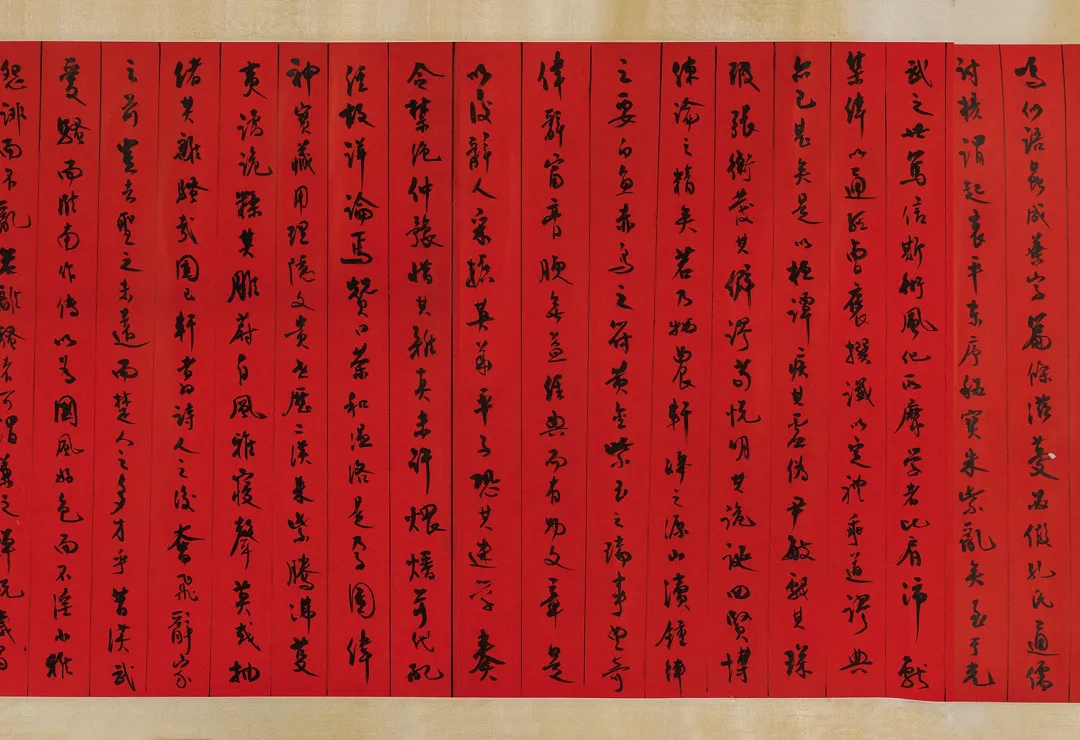 鳴似語蟲成葉字篇條滋蔓必假孔氏通儒
討核謂起哀平東序秘寶朱紫亂矣至于光
武之世篤信斯術風化所靡學者比肩沛獻
集緯以通經曹褒撰讖以定禮乖道謬典
亦已甚矣是以桓譚疾其虛偽尹敏戲其深
瑕張衡發其僻謬荀悅明其詭誕四賢博
練論之精矣若乃犧農軒皞之源山瀆鍾律
之要白魚赤烏之符黃金紫玉之瑞事豐奇
偉辭富膏腴無益經典而有助文章是
以後辭人采摭英華平子恐其迷學奏
令禁絕仲豫惜其雜真未許煨燔前代配
經故詳論焉贊曰榮和溫洛是孕圖緯
神寶藏用理隱文貴世歷二漢朱紫騰沸芟
夷譎詭糅其雕蔚自風雅寢聲莫或抽
緒其離騷哉固已軒翥詩人之後奮飛辭家
之前豈去聖之未遠而楚人之多才乎昔漢武
愛騷而淮南作傳以為國風好色而不淫小雅
怨誹而不亂若離騷者可謂兼之蟬蛻穢濁